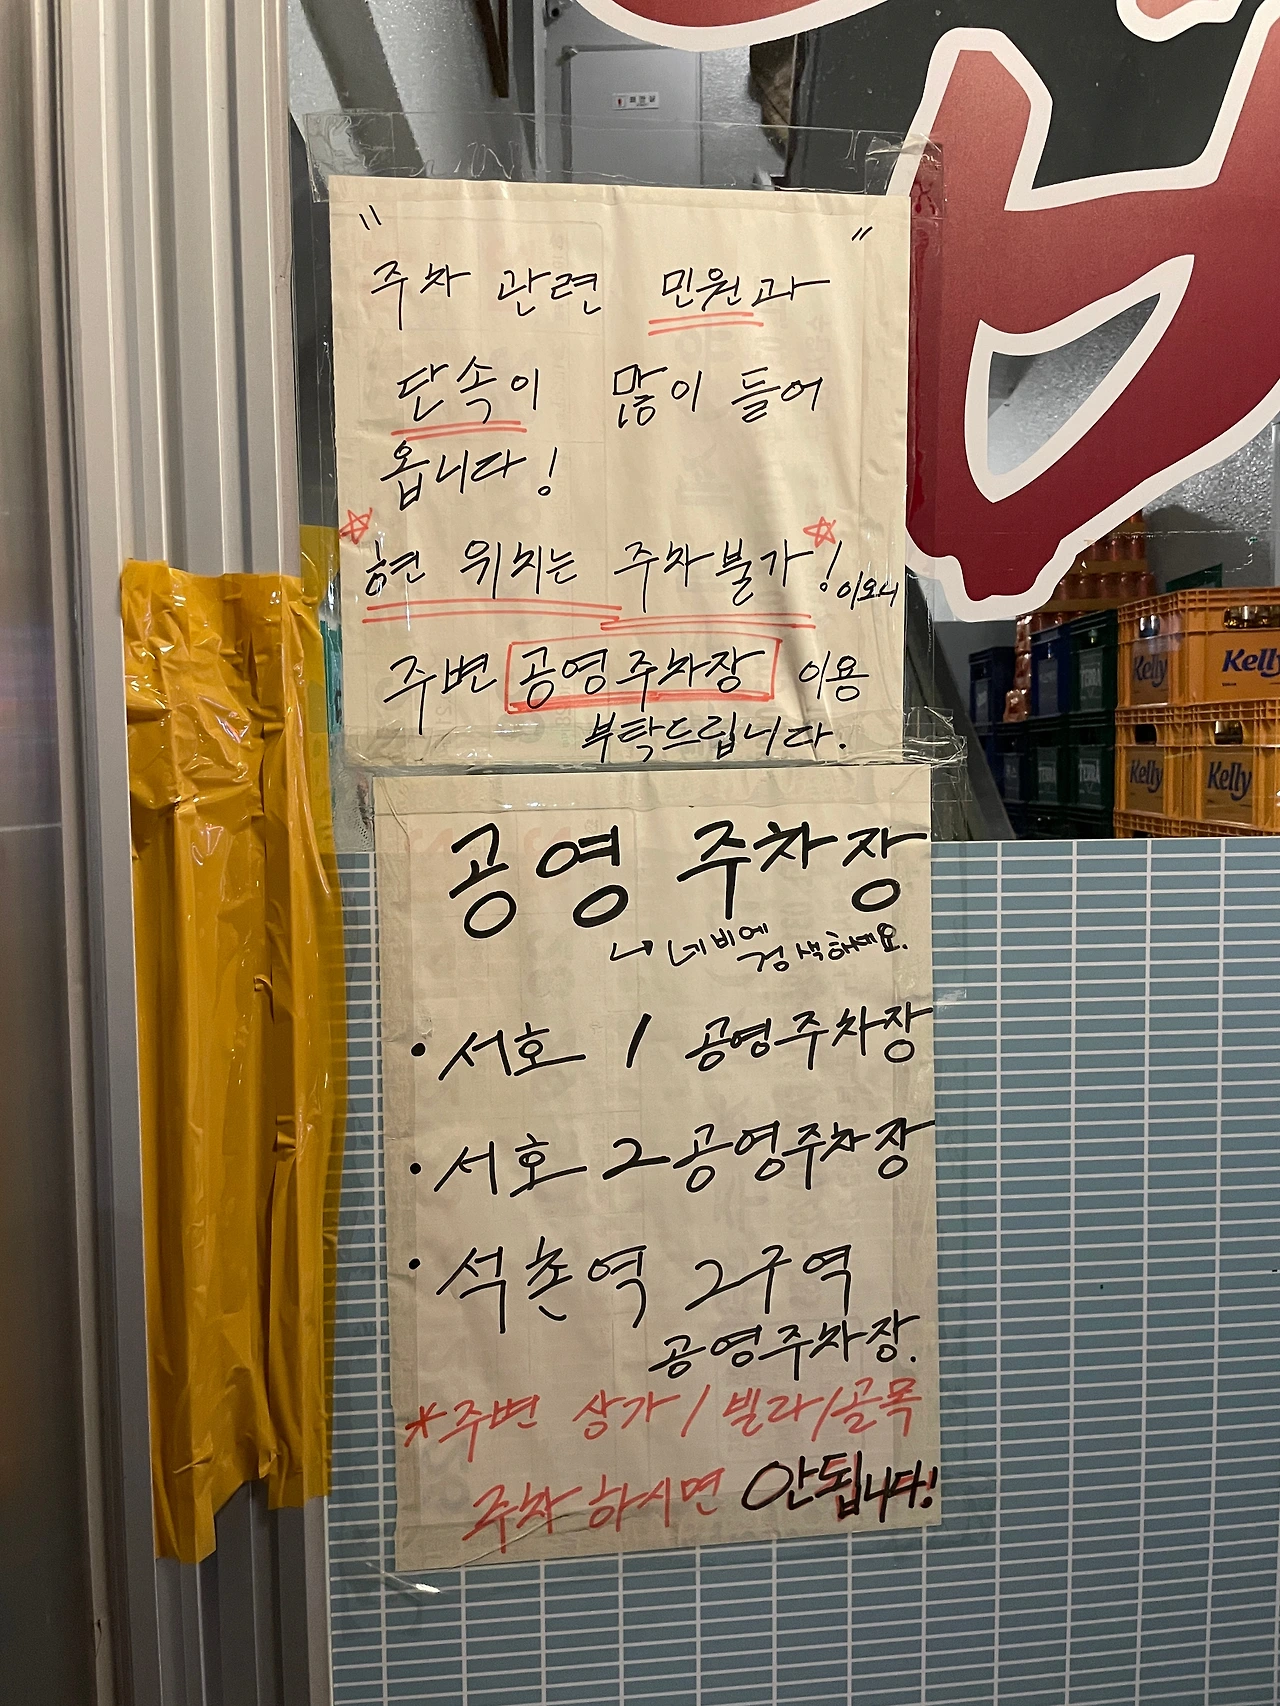 " "
주차 관련 민원과
단속이 많이 들어
옵니다!
☆현 위치는 주차불가☆! 이오니
주변 공영주차장 이용
부탁드립니다.
공영 주차장
↳ 네비에
검색하세요.
• 서호 1 공영주차장
• 서호 2 공영주차장
• 석촌역 2구역
공영주차장.
*주변 상가/빌라/골목
주차하시면 안됩니다!
Kelly
Kelly
TERRA
TERRA
Kelly
Kelly